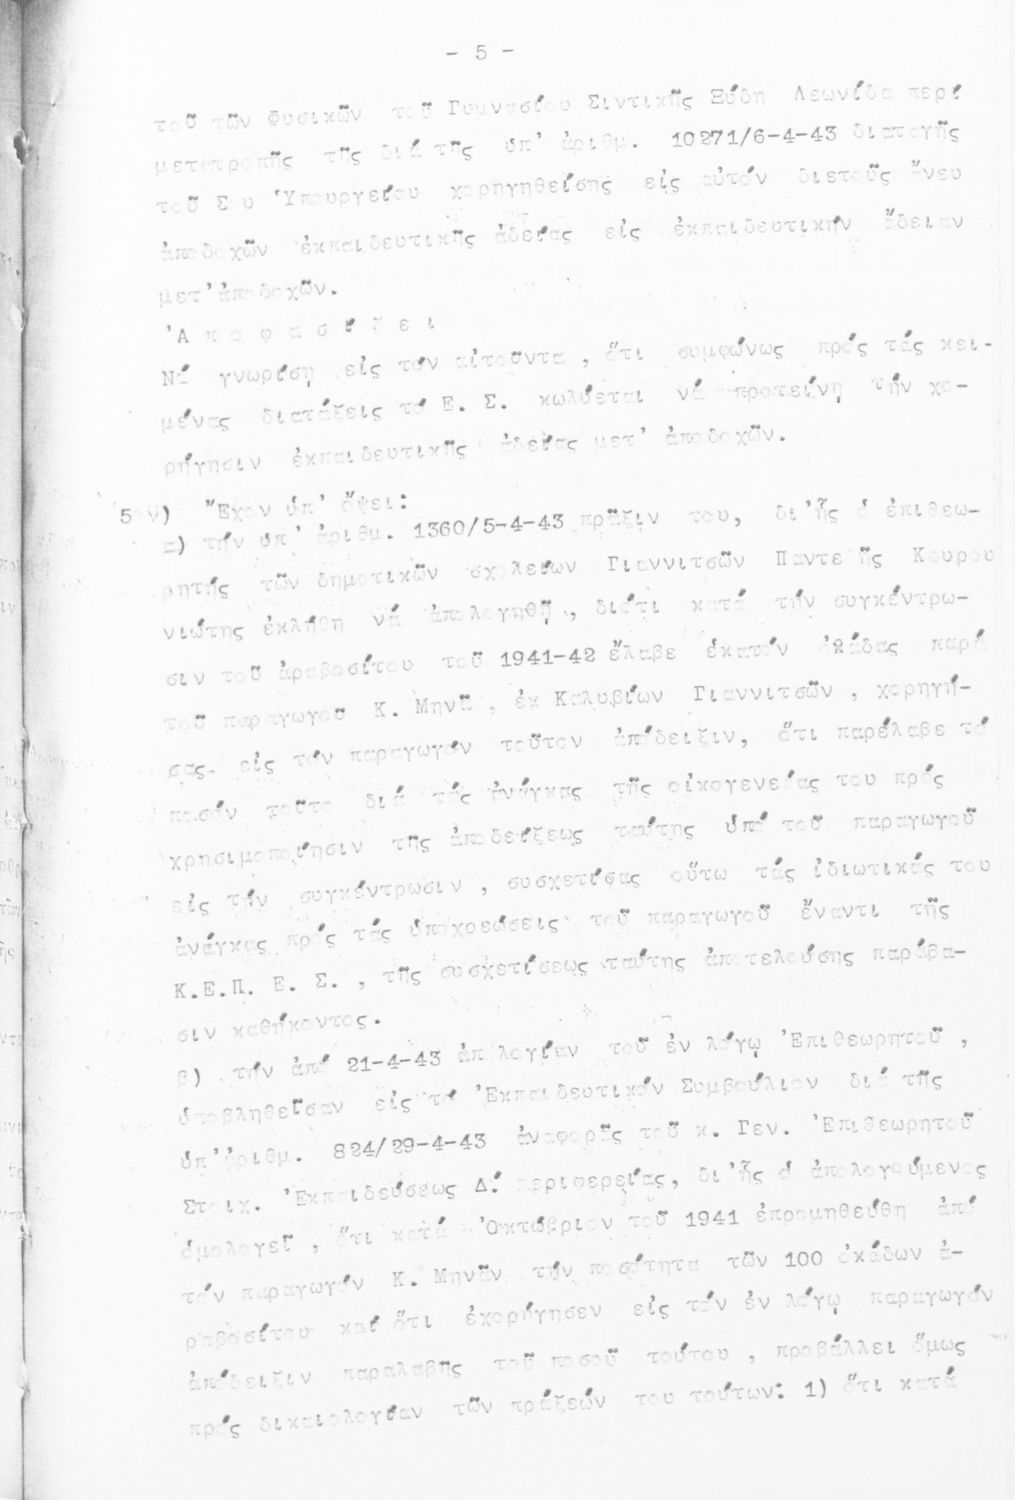 - 5 -
τοῦ τῶν Φυσικῶν τοῦ Γυμνασίου Σιντικῆς Ξύδη Λεωνίδα περί
μετατροπῆς τῆς διά τῆς ὑπ' ἀριθμ. 10271/6-4-43 διαταγῆς
τοῦ Σου Ὑπουργείου χορηγηθείσης εἰς αὐτόν διετοῦς ἄνευ
ἀποδοχῶν ἐκπαιδευτικῆς ἀδείας εἰς ἐκπαιδευτικήν ἄδειαν
μετ' ἀποδοχῶν.
Ἀ π ο φ α σ ί ζ ε ι
Νά γνωρίση εἰς τόν αἰτοῦντα , ὅτι συμφώνως πρός τάς κει-
μένας διατάξεις τό Ε. Σ. κωλύεται νά προτείνη τήν χο-
ρήγησιν ἐκπαιδευτικῆς ἀδείας μετ' ἀποδοχῶν.
5ον) Ἔχον ὑπ' ὄψει:
α) τήν ὑπ' ἀριθμ. 1360/5-4-43 πρᾶξιν του, δι'ἧς ὁ ἐπιθεω-
ρητής τῶν δημοτικῶν σχολείων Γιαννιτσῶν Παντε ῆς Κουρου
νιώτης ἐκλήθη νά ἀπολογηθῆ , διότι κατά τήν συγκέντρω-
σιν τοῦ ἀραβοσίτου τοῦ 1941-42 ἔλαβε ἑκατόν ὀκάδας παρά
τοῦ παραγωγοῦ Κ. Μηνᾶ , ἐκ Καλυβίων Γιαννιτσῶν , χορηγή-
σας εἰς τόν παραγωγόν τοῦτον ἀπόδειξιν, ὅτι παρέλαβε τό
ποσόν τοῦτο διά τάς ἀνάγκας τῆς οἰκογενείας του πρός
χρησιμοποίησιν τῆς ἀποδείξεως ταύτης ὑπό τοῦ παραγωγοῦ
εἰς τήν συγκέντρωσιν , συσχετίσας οὕτω τάς ἰδιωτικάς του
ἀνάγκας πρός τάς ὑποχρεώσεις τοῦ παραγωγοῦ ἔναντι τῆς
Κ.Ε.Π. Ε. Σ. , τῆς συσχετίσεως ταύτης ἀποτελούσης παράβα-
σιν καθήκοντος.
β) τήν ἀπό 21-4-43 ἀπολογίαν τοῦ ἐν λόγῳ Ἐπιθεωρητοῦ ,
ὑποβληθεῖσαν εἰς τό Ἐκπαιδευτικόν Συμβούλιον διά τῆς
ὑπ' ἀριθμ. 824/29-4-43 ἀναφορᾶς τοῦ κ. Γεν. Ἐπιθεωρητοῦ
Στοιχ. Ἐκπαιδεύσεως Δ΄ περιφερείας, δι'ἧς ὁ ἀπολογούμενος
ὁμολογεῖ , ὅτι κατά Ὀκτώβριον τοῦ 1941 ἐπρομηθεύθη ἀπό
τόν παραγωγόν Κ. Μηνᾶν τήν ποσότητα τῶν 100 ὀκάδων ἀ-
ραβοσίτου καί ὅτι ἐχορήγησεν εἰς τόν ἐν λόγῳ παραγωγόν
ἀπόδειξιν παραλαβῆς τοῦ ποσοῦ τούτου , προβάλλει ὅμως
πρός δικαιολογίαν τῶν πράξεών του τούτων: 1) ὅτι κατά